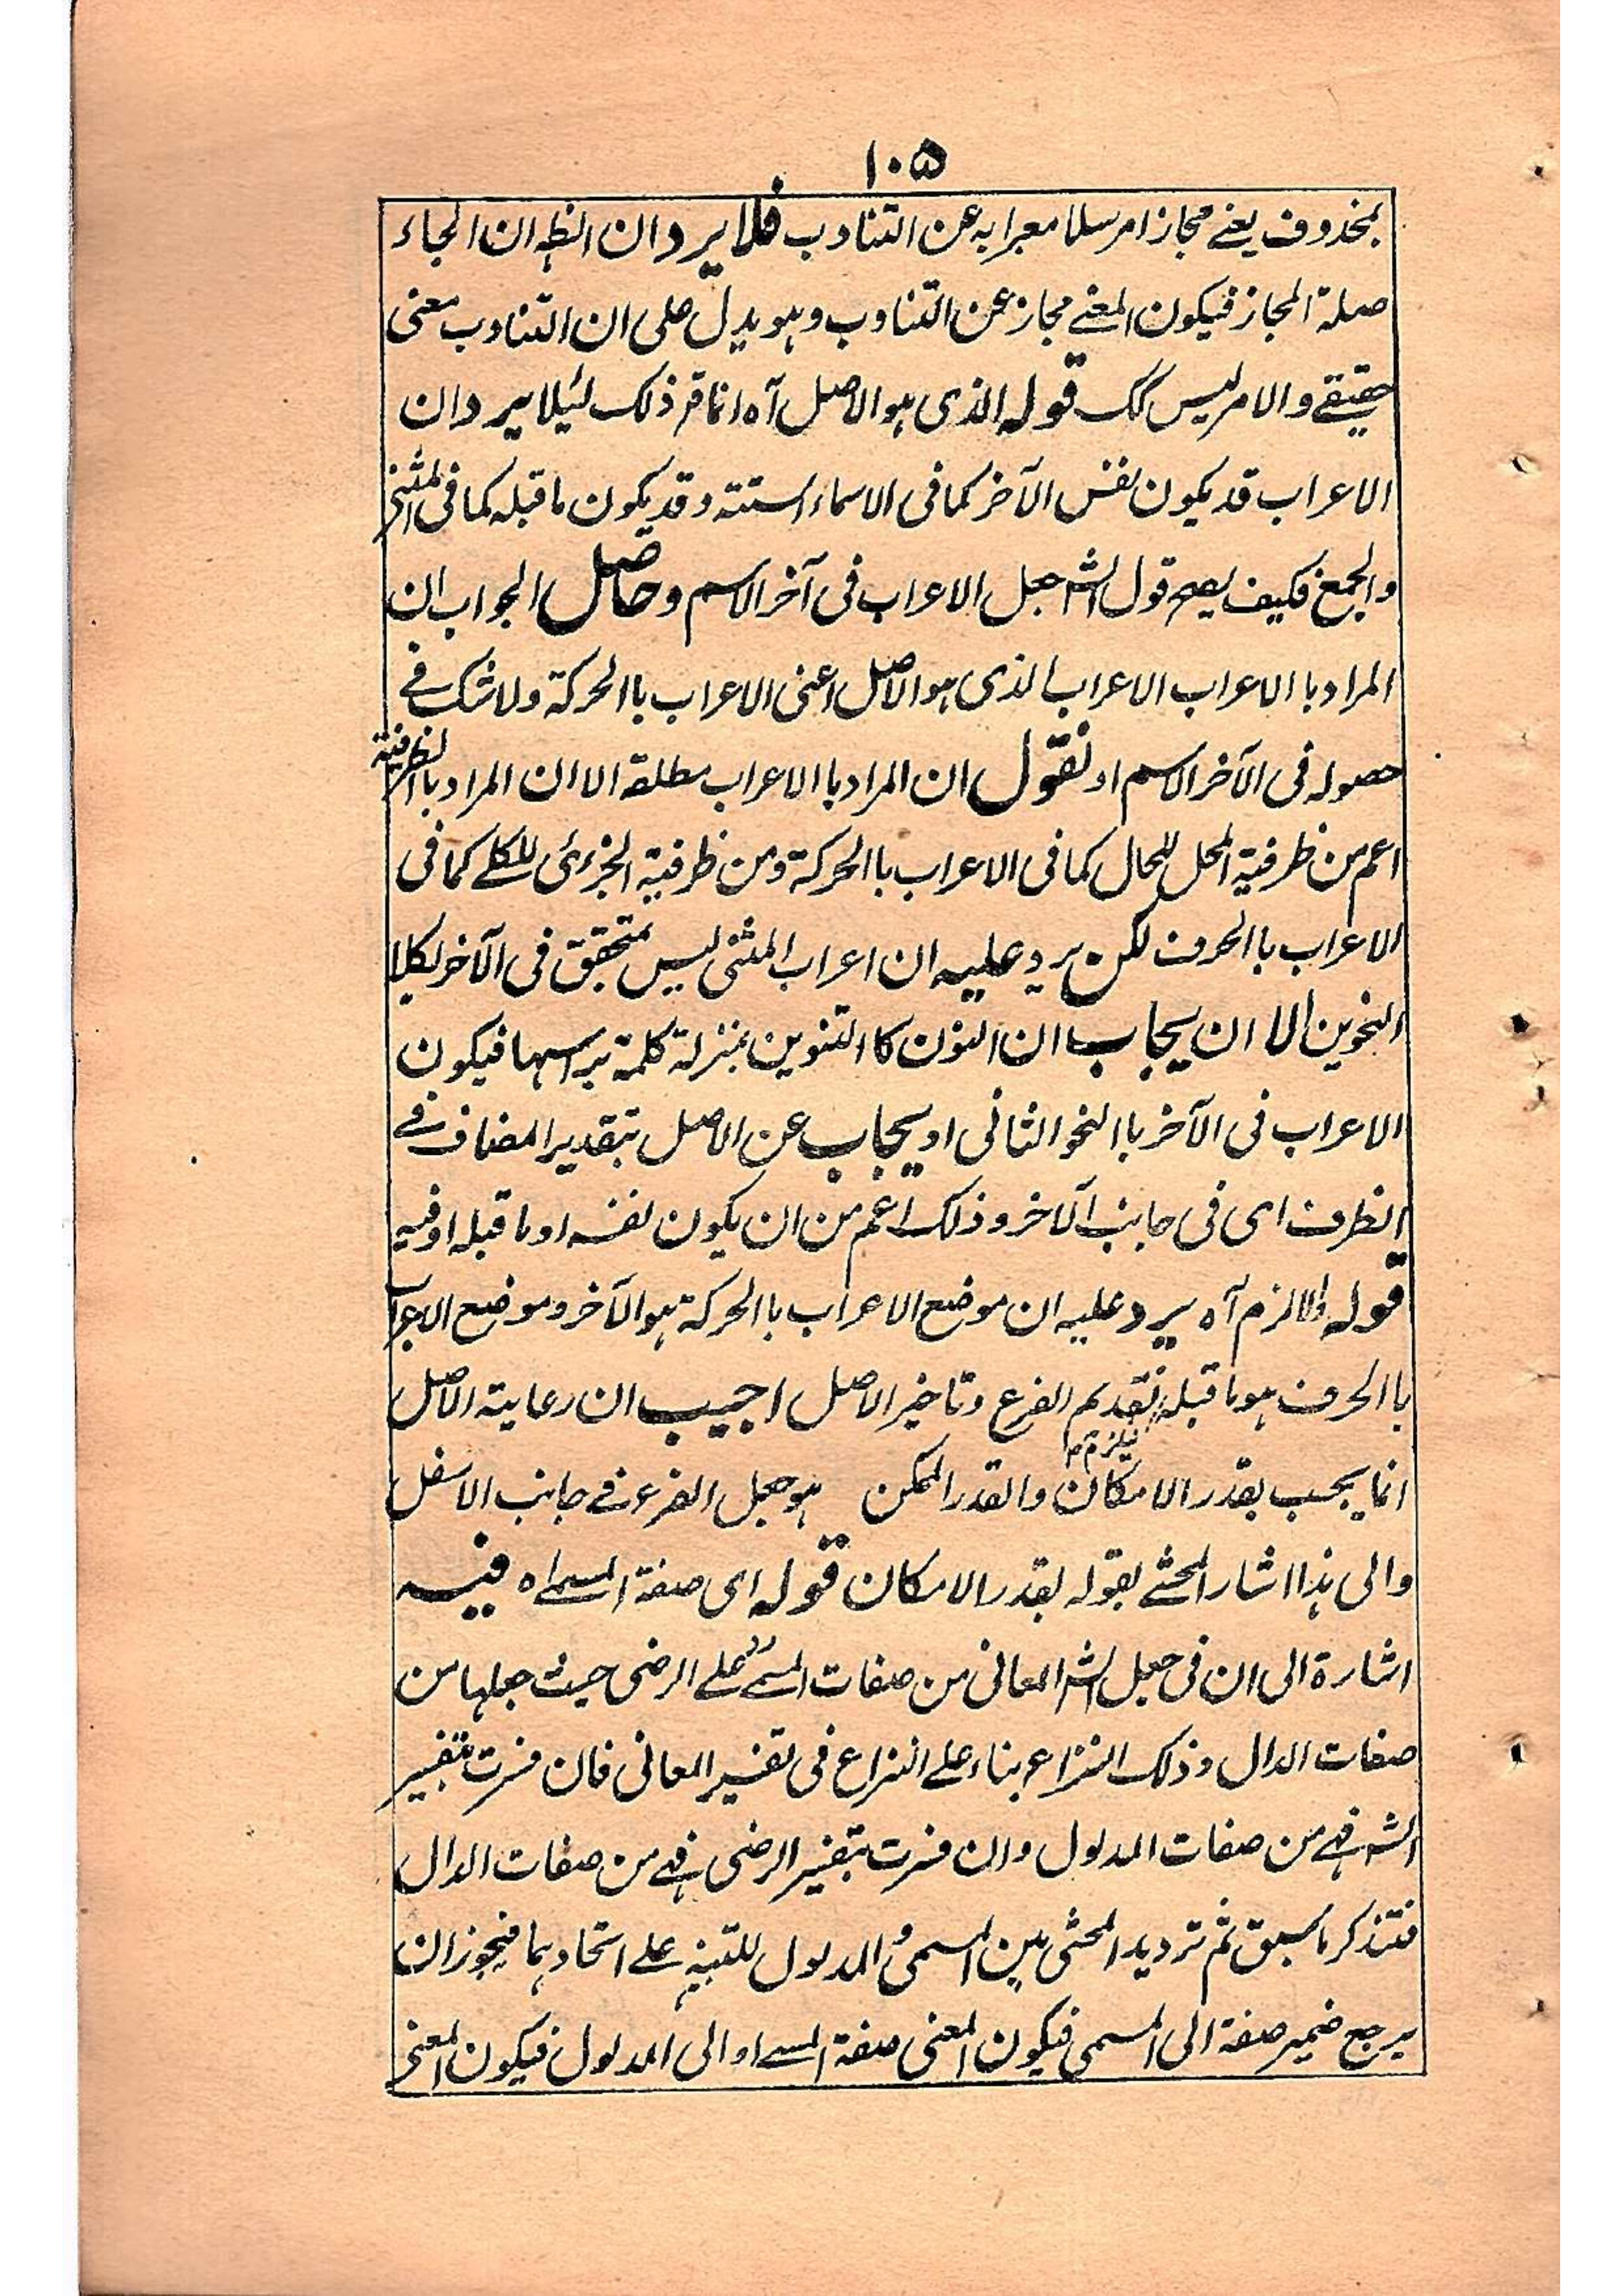 ۱۰۵
بمحذوف یعنے مجازا مرسلا معبرا به عن التناوب فلا یرد ان الظہ ان الجاء
صلة المجاز فیکون المعنے مجاز عن التناوب وہو یدل علی ان التناوب معنی
حقیقے والامر لیس کک قوله الذی ہو الاصل آہ انما قر ذلک لئیلا یرد ان
الاعراب قد یکون نفس الآخر کما فی الاسماء الستتة وقد یکون ما قبله کما فی المثنے
والجمع فکیف یصح قول الشہ جعل الاعراب فی آخر الاسم وحاصل الجواب ان
المراد باالاعراب الاعراب الذی ہو الاصل اعنی الاعراب باالحرکة ولا شک فے
حصوله فی الآخر الاسم او نقول ان المراد باالاعراب مطلقة الا ان المراد باالظرفیة
اعم من ظرفیة المحل للحال کما فی الاعراب باالحرکة ومن ظرفیة الجزئی للکلے کما فی
الاعراب باالحروف لکن یرد علیه ان اعراب المثنی لیس بمتحقق فی الآخر لکلا
النحوین الا ان یجاب ان النون کاالتنوین بمنزلة کلمة براسہا فیکون
الاعراب فی الآخر باالنحو الثانی او یجاب عن الاصل بتقدیر المضاف فے
الظرف ای فی جانب الآخر وذلک اعم من ان یکون نفسه او ما قبله او فیه
قوله والا لزم آہ یرد علیه ان موضع الاعراب باالحرکة ہو الآخر وموضع الاعراب
باالحروف ہو ما قبله تقدیم الفرع وتاخیر الاصل اجیب ان رعایة الاصل
فیلزم ۱۲
انما یجب بقدر الامکان والقدر الممکن ہو جعل الفرع فے جانب الاسفل
والی ہذا اشار المحشے بقوله بقدر الامکان قوله ای صفة المسماہ فیه
اشارة الی ان فی جعل الشہ المعانی من صفات المسمے رد علے الرضی حیث جعلہا من
صفات الدال وذلک النزاع بناء علے النزاع فی تفسیر المعانی فان فسرت بتفسیر
الشہ فہے من صفات المدلول وان فسرت بتفسیر الرضی فہے من صفات الدال
فتذکر ما سبق ثم تردید المحشی بین المسمی و المدلول للتنبیہ علے اتحادہما فیجوز ان
یرجع ضمیر صفة الی المسمی فیکون المعنی صفة المسمے او الی المدلول فیکون المعنے